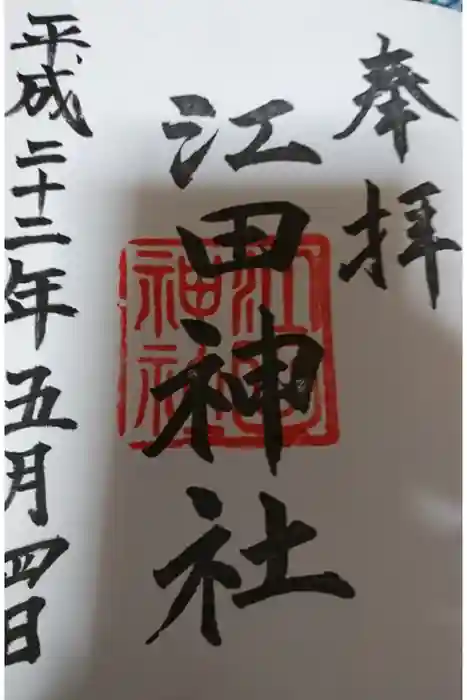 奉拝
江田神社
江田神社
平成二十二年五月四日